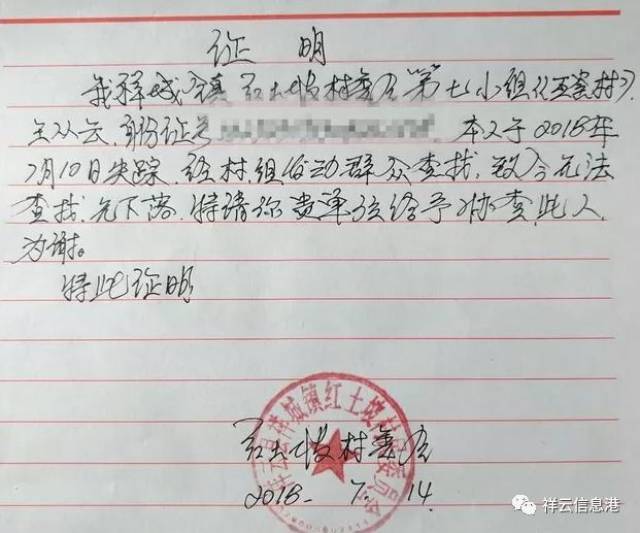 证 明
我祥城镇红土坡村委会第七小组(瓦窑村),
王从云,身份证号 本人于2018年
7月10日失踪,经村、组发动群众查找,致今无法
查找,无下落,特请你贵单位给予协查,此人
为谢。
特此证明
红土坡村委会
2018- 7. 14.
祥云县祥城镇红土坡村民委员会
祥云信息港